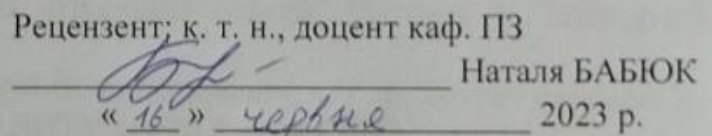 Рецензент; к. т. н., доцент каф. ПЗ
Наталя БАБЮК
« 16 » червня 2023 р.